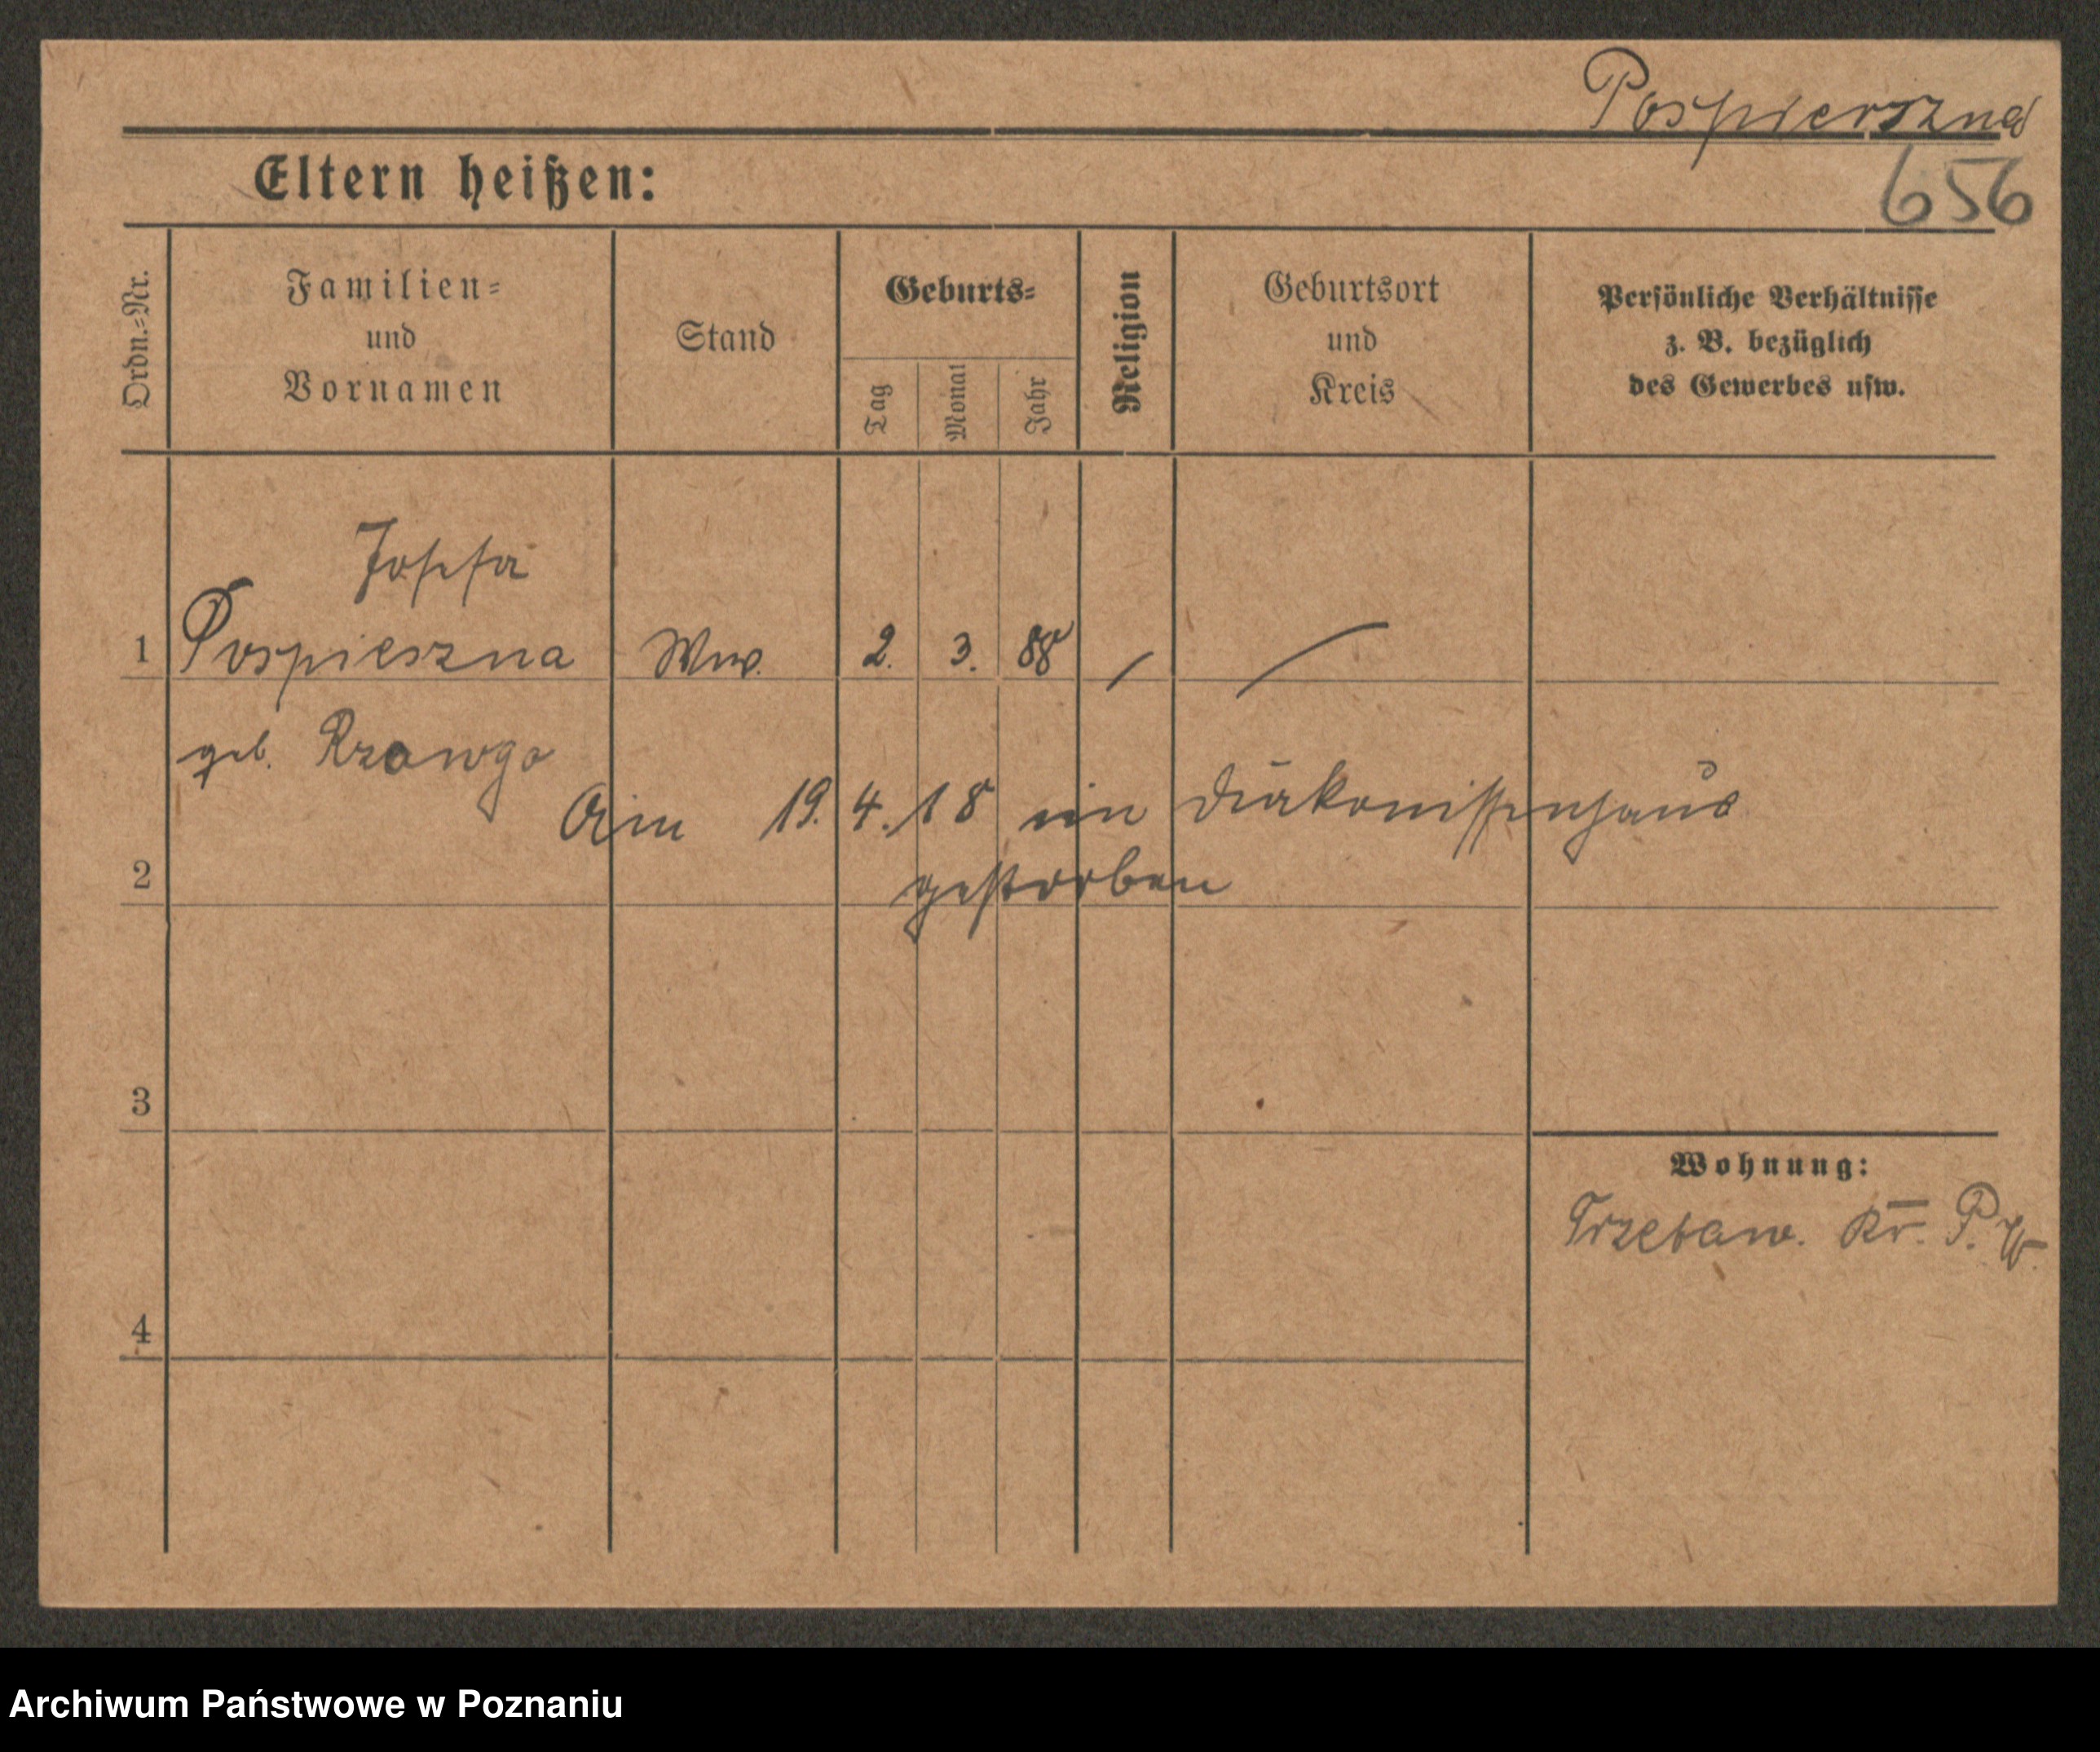 Pospierszna
656
Eltern heißen:
Ordn.=Nr.
Familien=
und
Vornamen
Stand
Geburts=
Tag
Monat
Jahr
Religion
Geburtsort
und
Kreis
Persönliche Verhältnisse
z. B. bezüglich
des Gewerbes usw.
1
Pospieszna Ww. 2. 3. 88
geb.
Am 19. 4. 18 im Diakonissenhaus
2
gestorben
3
Wohnung:
Trzebaw. Kr. P. W.
4
Archiwum Państwowe w Poznaniu